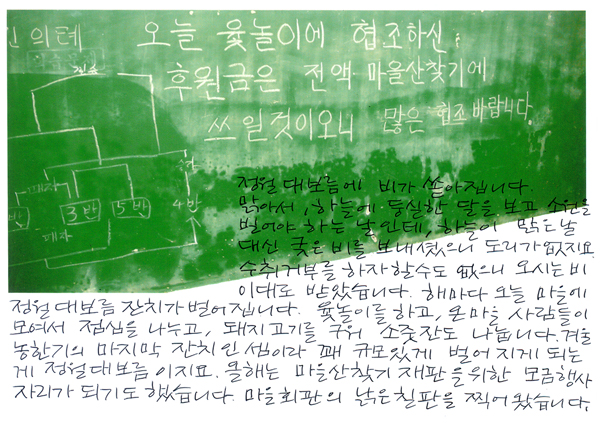 인 의테
오늘 윷놀이에 협조하신
후원금은 전액 마을산찾기에
쓰일것이오니 많은 협조 바랍니다.
패자
3반
5반
4반
패자
정월 대보름에 비가 쏟아집니다.
맑아서, 하늘에 둥실한 달을 보고 소원을
빌어야 하는 날인데, 하늘이 맑은 날
대신 궂은 비를 보내셨으니 도리가 없지요.
수취거부를 하자 할수도 없으니 오시는 비
이대로 받았습니다. 해마다 오늘 마을에
정월 대보름 잔치가 벌어집니다. 윷놀이를 하고, 온마을 사람들이
모여서 점심을 나누고, 돼지고기를 구워 소줏잔도 나눕니다. 겨울
농한기의 마지막 잔치인 셈이라 꽤 규모있게 벌어지게 되는
게 정월대보름이지요. 올해는 마을산찾기 재판을 위한 모금행사
자리가 되기도 했습니다. 마을회관의 낡은 칠판을 찍어 왔습니다.